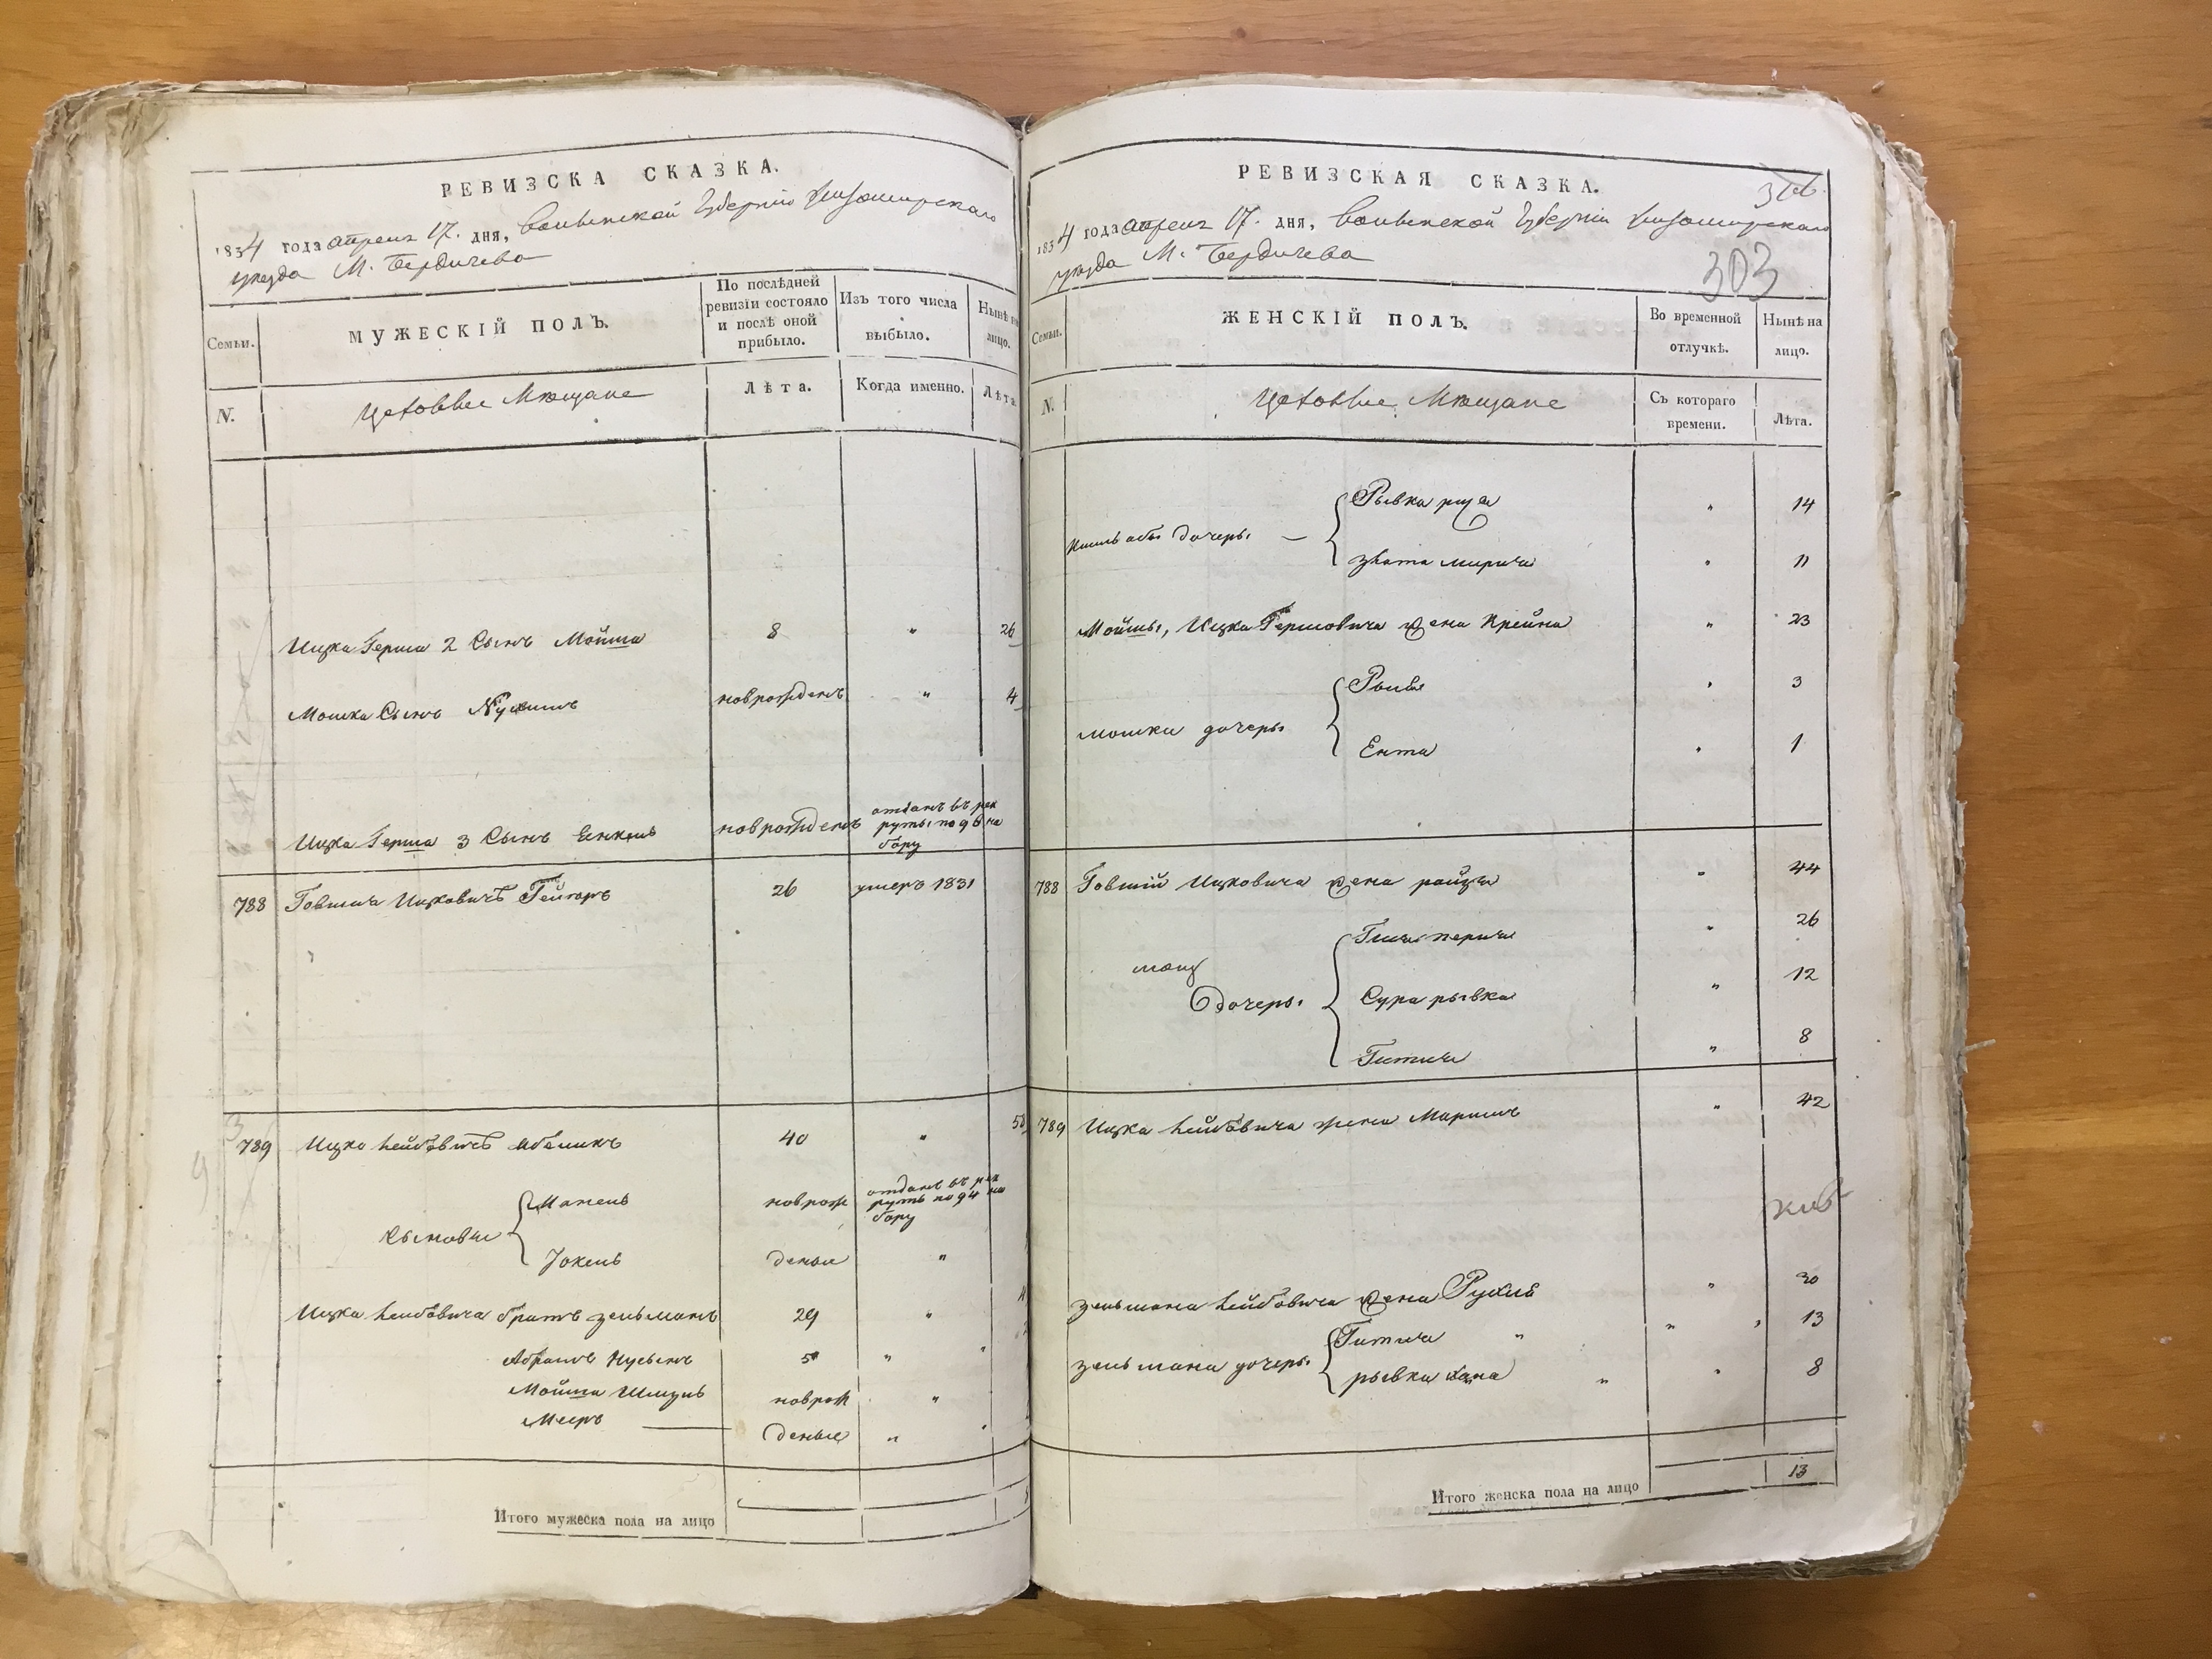 РЕВИЗСКА СКАЗКА.
1834 года апреля 17. дня, Волынской Губернии Житомирскаго
уезда М. Бердичева
Семьи.
МУЖЕСКІЙ ПОЛЪ.
По послѣдней
ревизіи состояло
и послѣ оной
прибыло.
Изъ того числа
выбыло.
Нынѣ на
лицо.
N.
Цеховые Мещане
Лѣта.
Когда именно.
Лѣта
Ицка Герша 2 Сынъ Мойша 8 " 26
Мошка Сынъ новрожденъ " 4
Ицка Герша 3 Сынъ Енкель новрожденъ отданъ въ рек
руты по 96 на
бору
788 Говшия Ицковичъ 26 умеръ 1831
789 Ицко Лейбовичъ 40 "
Сыновья
Манель новрож отданъ въ рек
рутъ по 94 на
бору
Іокель деные "
Ицка Лейбовича братъ Зельманъ 29 "
Абрамъ Нусынъ 5 "
Мойша Шмуль новрож "
Мееръ деные "
Итого мужеска пола на лицо
РЕВИЗСКАЯ СКАЗКА.
1834 года апреля 17. дня, Волынской Губерніи Житомирскаго
уезда М. Бердичева
303
Семьи.
ЖЕНСКІЙ ПОЛЪ.
Во временной
отлучкѣ.
Нынѣ на
лицо.
N.
Цеховые Мещане
Съ котораго
времени.
Лѣта.
дочеры
Рывка " 14
Злата " 11
Мойшы, Ицка Гершовича жена Крейна " 23
Мошки дочеры
" 3
Ента " 1
788 Говшій Ицковича жена райза " 44
дочеры
" 26
Сура рывка " 12
Гитля " 8
789 Ицка Лейбовича жена " 42
Зельмана Лейбовича жена Рухля " 30
Зельмана дочеры
Гитля " 13
рывка хана " 8
Итого женска пола на лицо 13